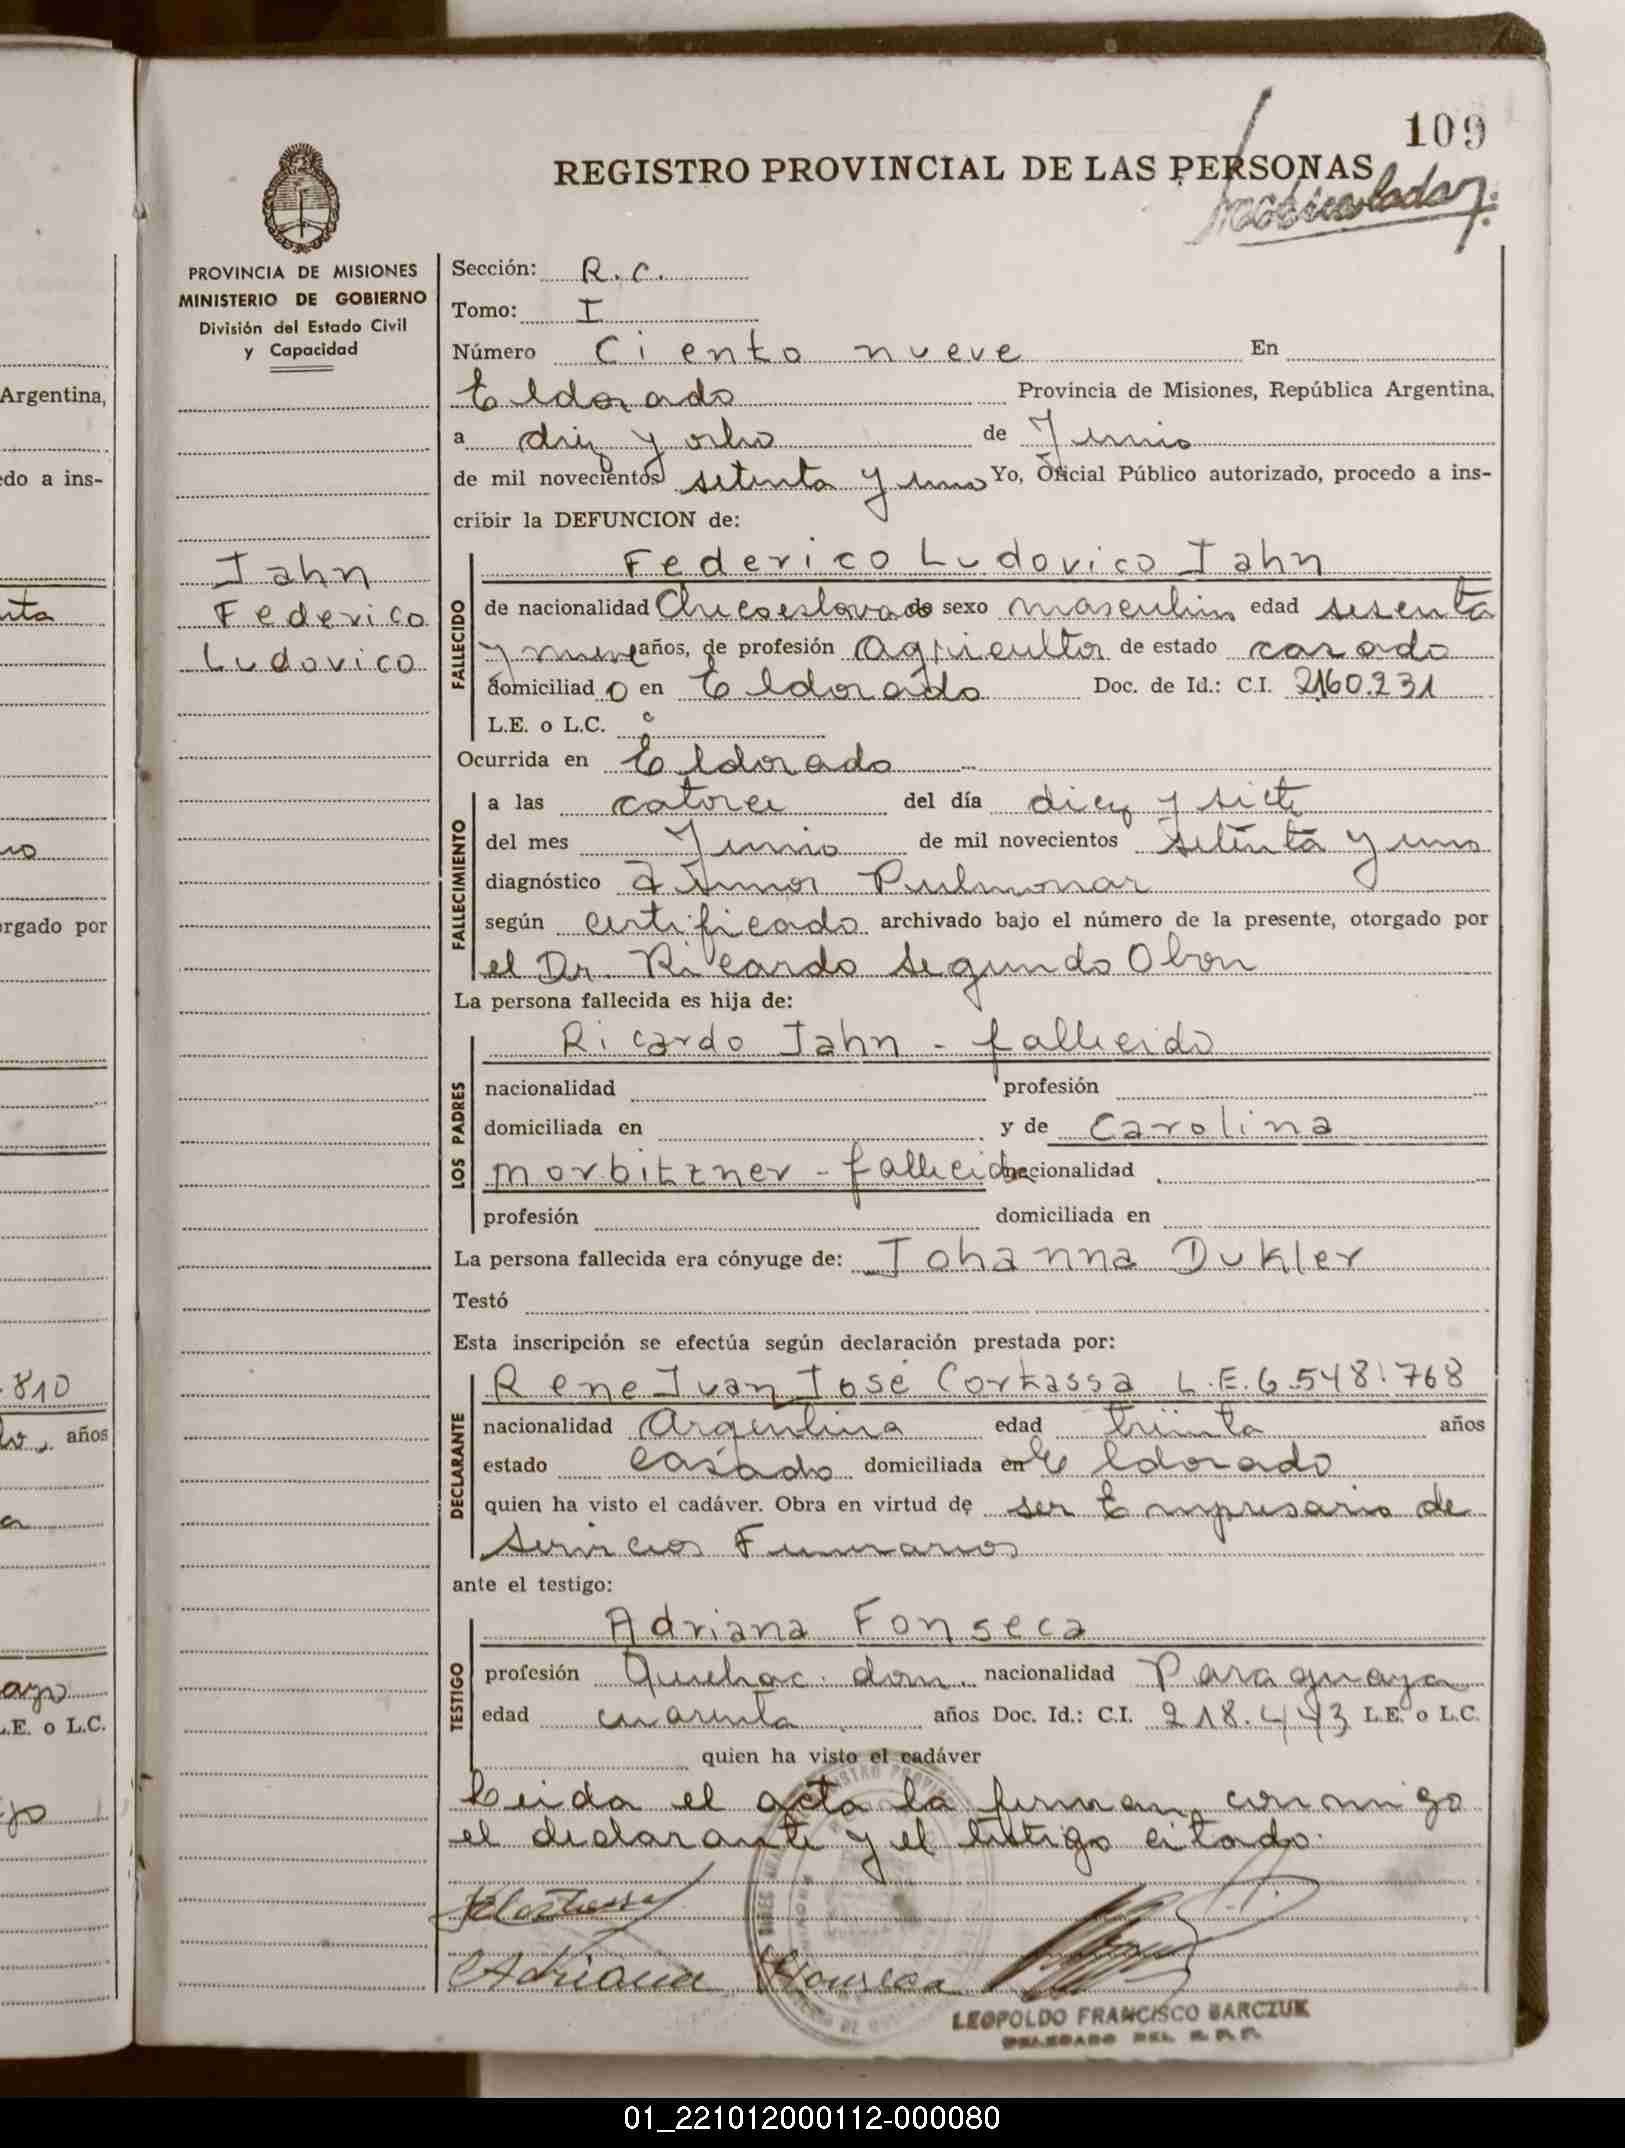 109
REGISTRO PROVINCIAL DE LAS PERSONAS
PROVINCIA DE MISIONES
MINISTERIO DE GOBIERNO
División del Estado Civil
y Capacidad
Jahn
Federico
Ludovico
Sección: R.C.
Tomo: I
Número Ciento nueve En
Eldorado Provincia de Misiones, República Argentina,
a diez y ocho de Junio
de mil novecientos setenta y uno Yo, Oficial Público autorizado, procedo a ins-
cribir la DEFUNCION de:
FALLECIDO
Federico Ludovico Jahn
de nacionalidad Checoeslovaco sexo masculino edad sesenta
y nueve años, de profesión Agricultor de estado casado
domiciliado en Eldorado Doc. de Id.: C.I. 2160.231
L.E. o L.C.
Ocurrida en Eldorado
FALLECIMIENTO
a las catorce del día diez y siete
del mes Junio de mil novecientos setenta y uno
diagnóstico Tumor Pulmonar
según certificado archivado bajo el número de la presente, otorgado por
el Dr. Ricardo Segundo Obon
La persona fallecida es hija de:
LOS PADRES
Ricardo Jahn - fallecido
nacionalidad profesión
domiciliada en y de Carolina
Morbitzner - fallecida nacionalidad
profesión domiciliada en
La persona fallecida era cónyuge de: Johanna Dukler
Testó
Esta inscripción se efectúa según declaración prestada por:
DECLARANTE
Rene Juan José Cortassa L.E. 6.548.768
nacionalidad Argentina edad treinta años
estado casado domiciliada en Eldorado
quien ha visto el cadáver. Obra en virtud de ser Empresario de
Servicios Funerarios
ante el testigo:
TESTIGO
Adriana Fonseca
profesión Quehac. dom. nacionalidad Paraguaya
edad cuarenta años Doc. Id.: C.I. 218.443 L.E. o L.C.
quien ha visto el cadáver
Leida el acta la firman conmigo
el declarante y el testigo citado.
Adriana Fonseca
LEOPOLDO FRANCISCO BARCZUK
DELEGADO DEL R.P.P.
Argentina,
do a ins-
rgado por
810
años
L.E. o L.C.
01_221012000112-000080